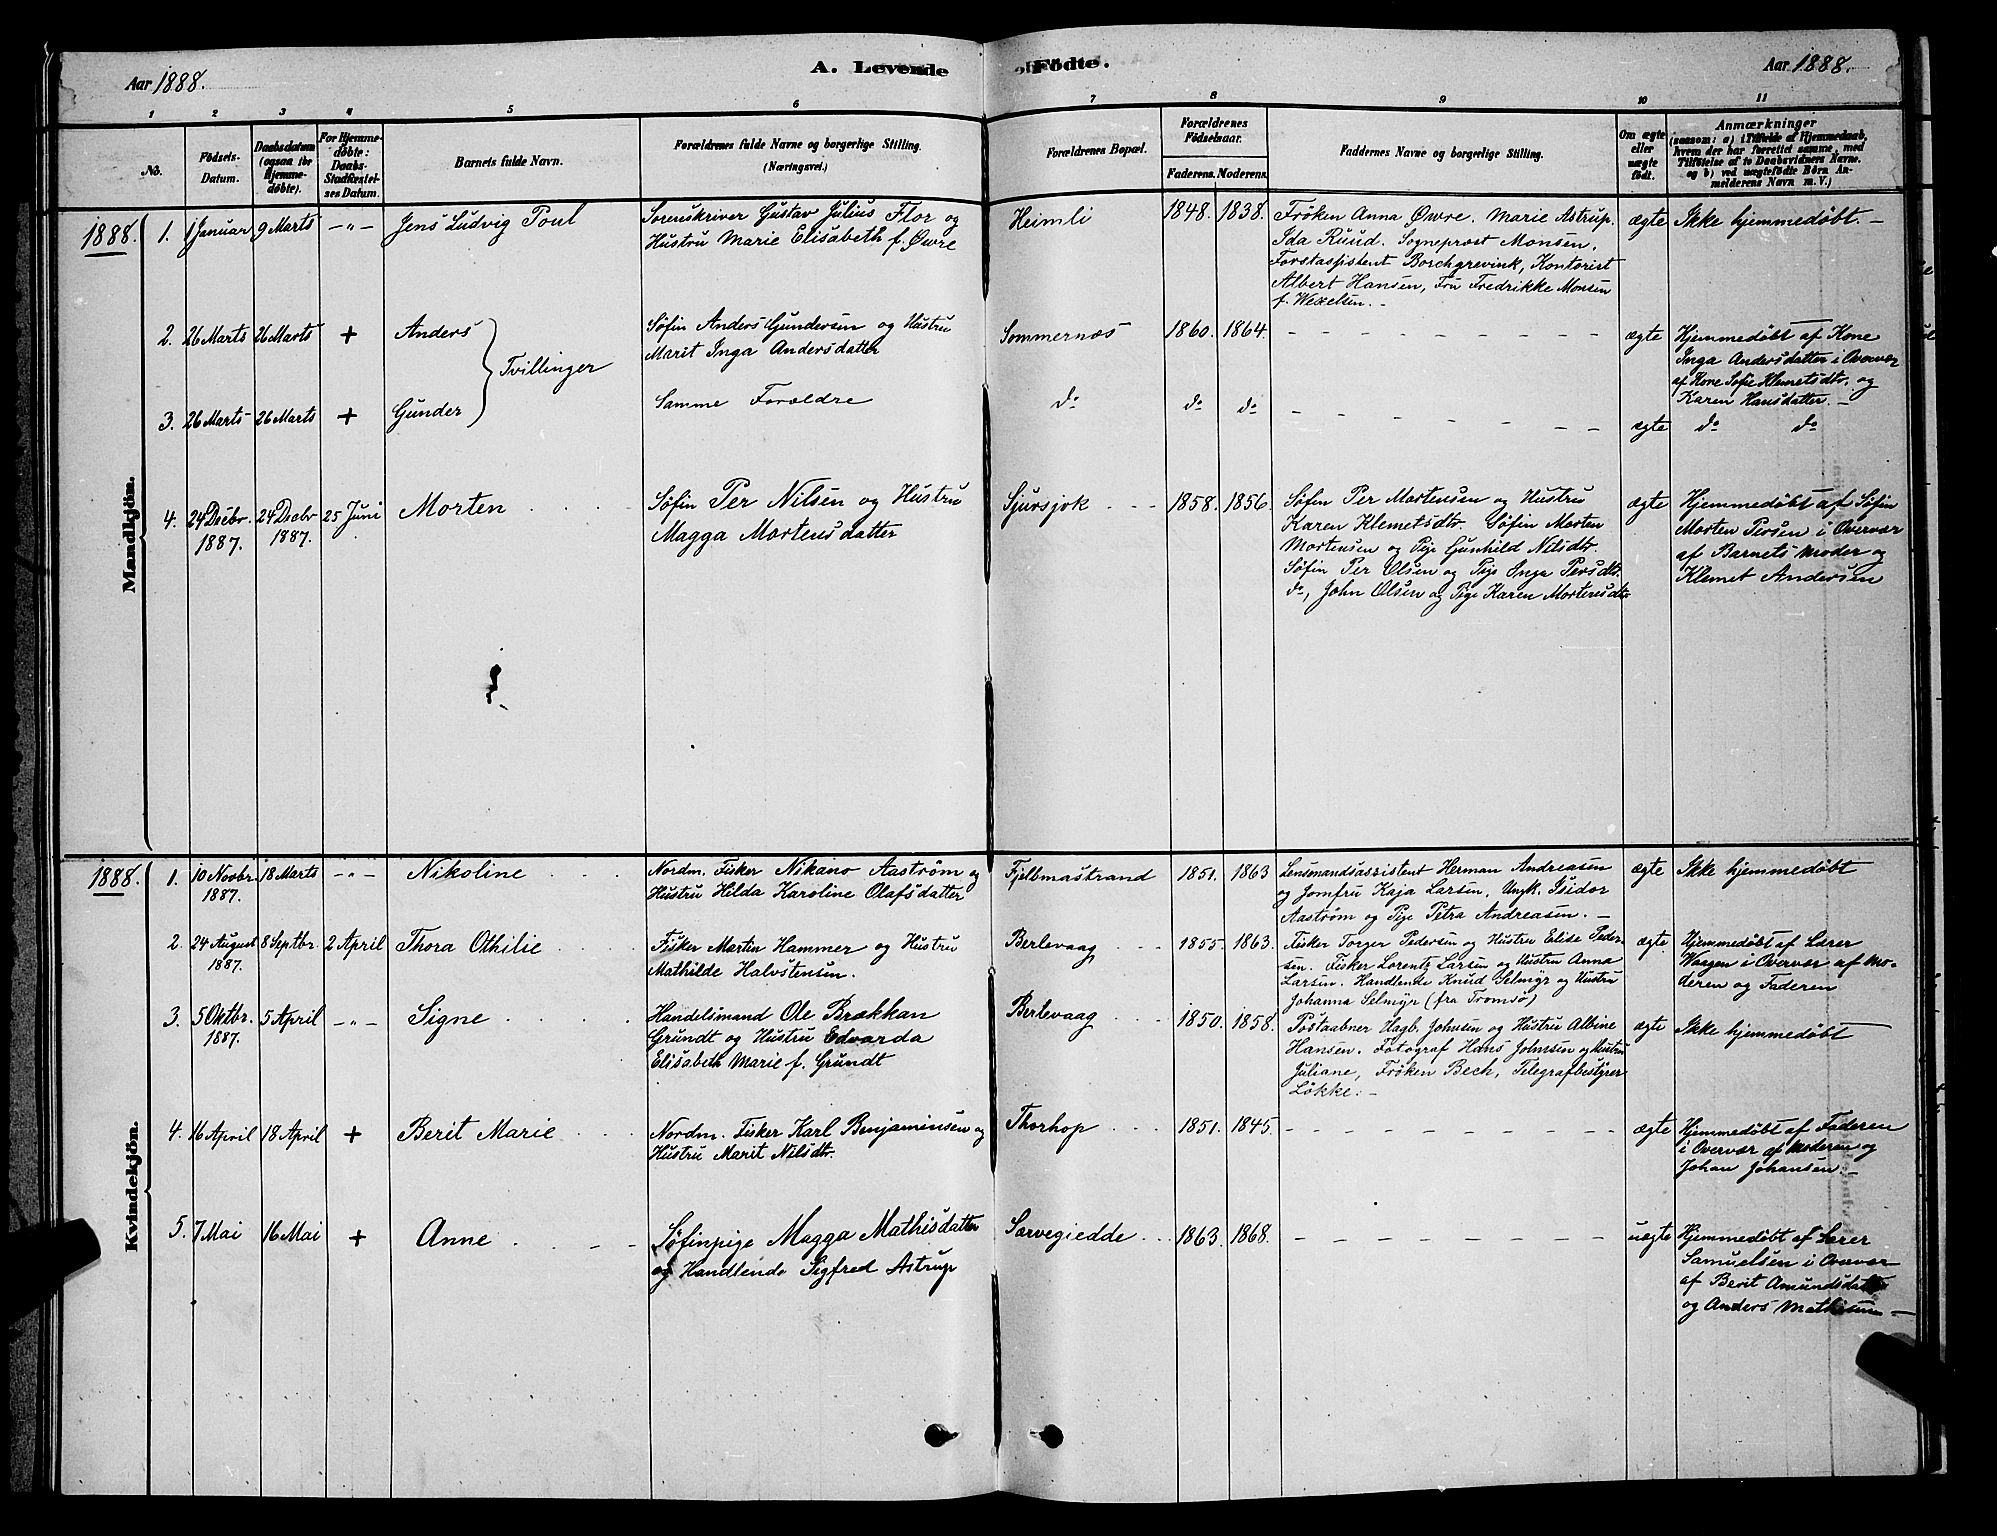 Aar 1888.
A. Levende Födte.
Aar 1888.
1 2 3 4 5 6 7 8 9 10 11
No.
Födsels-
Datum.
Daabsdatum
(ogsaa for
Hjemme-
döbte).
For Hjemme-
döbte:
Daabs-
Stadfæstel-
ses Datum.
Barnets fulde Navn.
Forældrenes fulde Navne og borgerlige Stilling.
(Næringsvei.)
Forældrenes Bopæl.
Forældrenes
Födselsaar.
Faderens. Moderens.
Faddernes Navne og borgerlige Stilling.
Om ægte
eller
uægte
födt.
Anmærkninger
(saasom: a) i Tilfælde af Hjemmedaab,
hvem der har forrettet samme, med
Tilföielse af to Daabsvidners Navne.
og b) ved uægtefödte Börn An-
melderens Navn m. V.)
Mandkjön.
1888. 1. 1 Januar 9 Marts -"- Jens Ludvig Poul
Sorenskriver Gustav Julius Flor og
Hustru Marie Elisabeth f. Øwre
Heimli 1848. 1838.
Frøken Anna Øwre. Marie Astrup.
Ida Ruud. Sogneprest Monsen.
Forstassistent Borchgrevink, Kontorist
Albert Hansen, Fru Fredrikke Monsen
f. Wexelsen. -
ægte Ikke hjemmedøbt. -
2. 26 Marts 26 Marts + Anders
Tvillinger
Søfin Anders Gundersen og Hustru
Marit Inga Andersdatter
Sommernæs 1860. 1864. - - - - - - -
ægte Hjemmedøbt af Kone
Inga Andersdatter i Overvær
af Kone Sofie Klemetsdtr. og
Karen Hansdatter. -
3. 26 Marts 26 Marts + Gunder
Samme Forældre
do do do - - - - - - -
ægte do do
4. 24 Decbr. 24 Decbr 25 Juni Morten
1887. 1887.
Søfin Per Nilsen og Hustru
Magga Mortensdatter
Sjursjok 1858. 1856.
Søfin Per Mortensen og Hustru
Karen Klemetsdtr. Søfin Morten
Mortensen og Pige Gunhild Nilsdtr.
Søfin Per Olsen og Pige Inga Persdtr.
do, John Olsen og Pige Karen Mortensdtr
ægte Hjemmedøbt af Søfin
Morten Persen i Overvær
af Barnets Moder og
Klemet Andersen
Kvindekjön.
1888. 1. 10 Novbr. 18 Marts -"- Nikoline
1887.
Nordm. Fisker Nikano Aaström og
Hustru Hilda Karoline Olafsdatter
Fjelbmastrand 1851. 1863
Lensmandsassistent Herman Andreasen
og Jomfru Kaja Larsen, Ungk. Isidor
Aaström og Pige Petra Andreasen. -
ægte Ikke hjemmedøbt
2. 24 August 8 Septbr. 2 April Thora Othilie
1887.
Fisker Martin Hammer og Hustru
Mathilde Halvstensen.
Berlevaag 1855. 1863.
Fisker Torger Pedersen og Hustru Elise Peder-
sen. Fisker Lorentz Larsen og Hustru Anna
Larsen. Handlende Knud Selmyr og Hustru
Johanna Selmyr (fra Tromsø)
ægte Hjemmedøbt af Lærer
i Overvær af Mo-
deren og Faderen
3. 5 Oktbr. 5 April -"- Signe
1887.
Handelsmand Ole Brækkan
Grundt og Hustru Edvarda
Elisabeth Marie f. Grundt
Berlevaag 1850. 1858.
Postaabner Hagb. Johnsen og Hustru Albine
Hansen. Fotograf Hans Johnsen og Hustru
Juliane, Frøken Bech, Telegrafbestyrer
Løkke. -
ægte Ikke hjemmedøbt
4. 16 April 18 April + Berit Marie
Nordm. Fisker Karl Benjaminsen og
Hustru Marit Nilsdtr.
Thorhop 1851. 1845. - - - - - - -
ægte Hjemmedøbt af Faderen
i Overvær af Moderen og
Johan Johansen. -
5. 7 Mai 16 Mai + Anne
Søfinpige Magga Mathisdatter
og Handlende Sigfred Astrup
Sarvegiedde 1863. 1868. - - - - - - -
uægte Hjemmedøbt af Lærer
Samuelsen i Overvær
af Berit Amundsdatter
og Anders Mathisen -